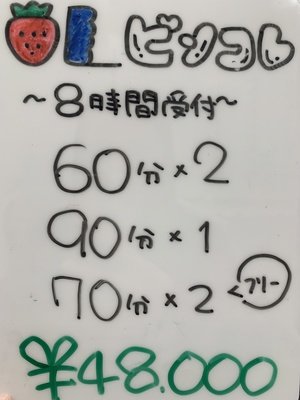 ピンコレ
~8時間受付~
60分×2
90分×1
70分×2 フリー
¥48.000